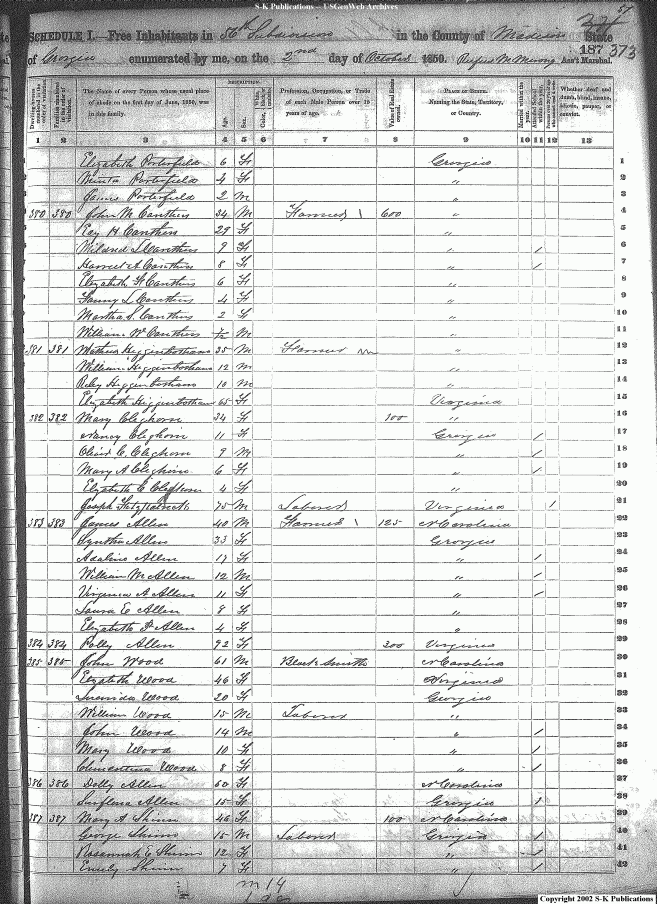 S-K Publications -- USGenWeb Archives
57
SCHEDULE I.—Free Inhabitants in 56th Subdivision in the County of Madison State
187 373
of Georgia enumerated by me, on the 2nd day of October 1850. Ass't Marshal.
The Name of every Person whose usual place of abode on the first day of June, 1850, was in this family.
DESCRIPTION.
Age.
Sex.
Profession, Occupation, or Trade of each Male Person over 15 years of age.
Value of Real Estate owned.
PLACE OF BIRTH. Naming the State, Territory, or Country.
Married within the year.
Attended School within the year.
Whether deaf and dumb, blind, insane, idiotic, pauper, or convict.
1 2 3 4 5 6 7 8 9 10 11 12 13
Elizabeth Porterfield 6 F Georgia 1
Porterfield 4 F " 2
James Porterfield 2 M " 3
380 380 John M Canthen 34 M Farmer 600 " 4
H Canthen 29 F " 5
Mildred Canthen 9 F " / 6
Harriet A Canthen 8 F " / 7
Elizabeth H Canthen 6 F " 8
Fanny L Canthen 4 F " 9
Martha S. Canthen 2 F " 10
William W Canthen M " 11
381 381 Higginbotham 35 M Farmer " 12
William Higginbotham 12 M " 13
Riley Higginbotham 10 M " 14
Elizabeth Higginbotham 65 F Virginia 15
382 382 Mary Cleghorn 34 F 100 " 16
Nancy Cleghorn 11 F Georgia / 17
C. Cleghorn 9 M " / 18
Mary A Cleghorn 6 F " / 19
Elizabeth C Cleghorn 4 F " 20
Joseph Fitzpatrick 75 M Laborer Virginia 1 21
383 383 James Allen 40 M Farmer 125 N Carolina 22
Cynthia Allen 33 F Georgia 23
Adaline Allen 17 F " / 24
William M Allen 12 M " / 25
Virginia A Allen 11 F " / 26
Laura E Allen 8 F " 27
Elizabeth Allen 4 F " 28
384 384 Polly Allen 92 F 200 Virginia 29
385 385 John Wood 61 M Black Smith N Carolina 30
Elizabeth Wood 46 F Virginia 31
Wood 20 F Georgia 32
William Wood 15 M Laborer " 33
John Wood 14 M " / 34
Mary Wood 10 F " / 35
Clementina Wood 8 F " / 36
386 386 Dolly Allen 60 F N Carolina 37
Allen 15 F Georgia / 38
387 387 Mary A Shinn 46 F 100 N Carolina 39
George Shinn 15 M Laborer Georgia / 40
Rosannah E Shinn 12 F " / 41
Emily Shinn 7 F " / 42
m 14
Copyright 2002 S-K Publications